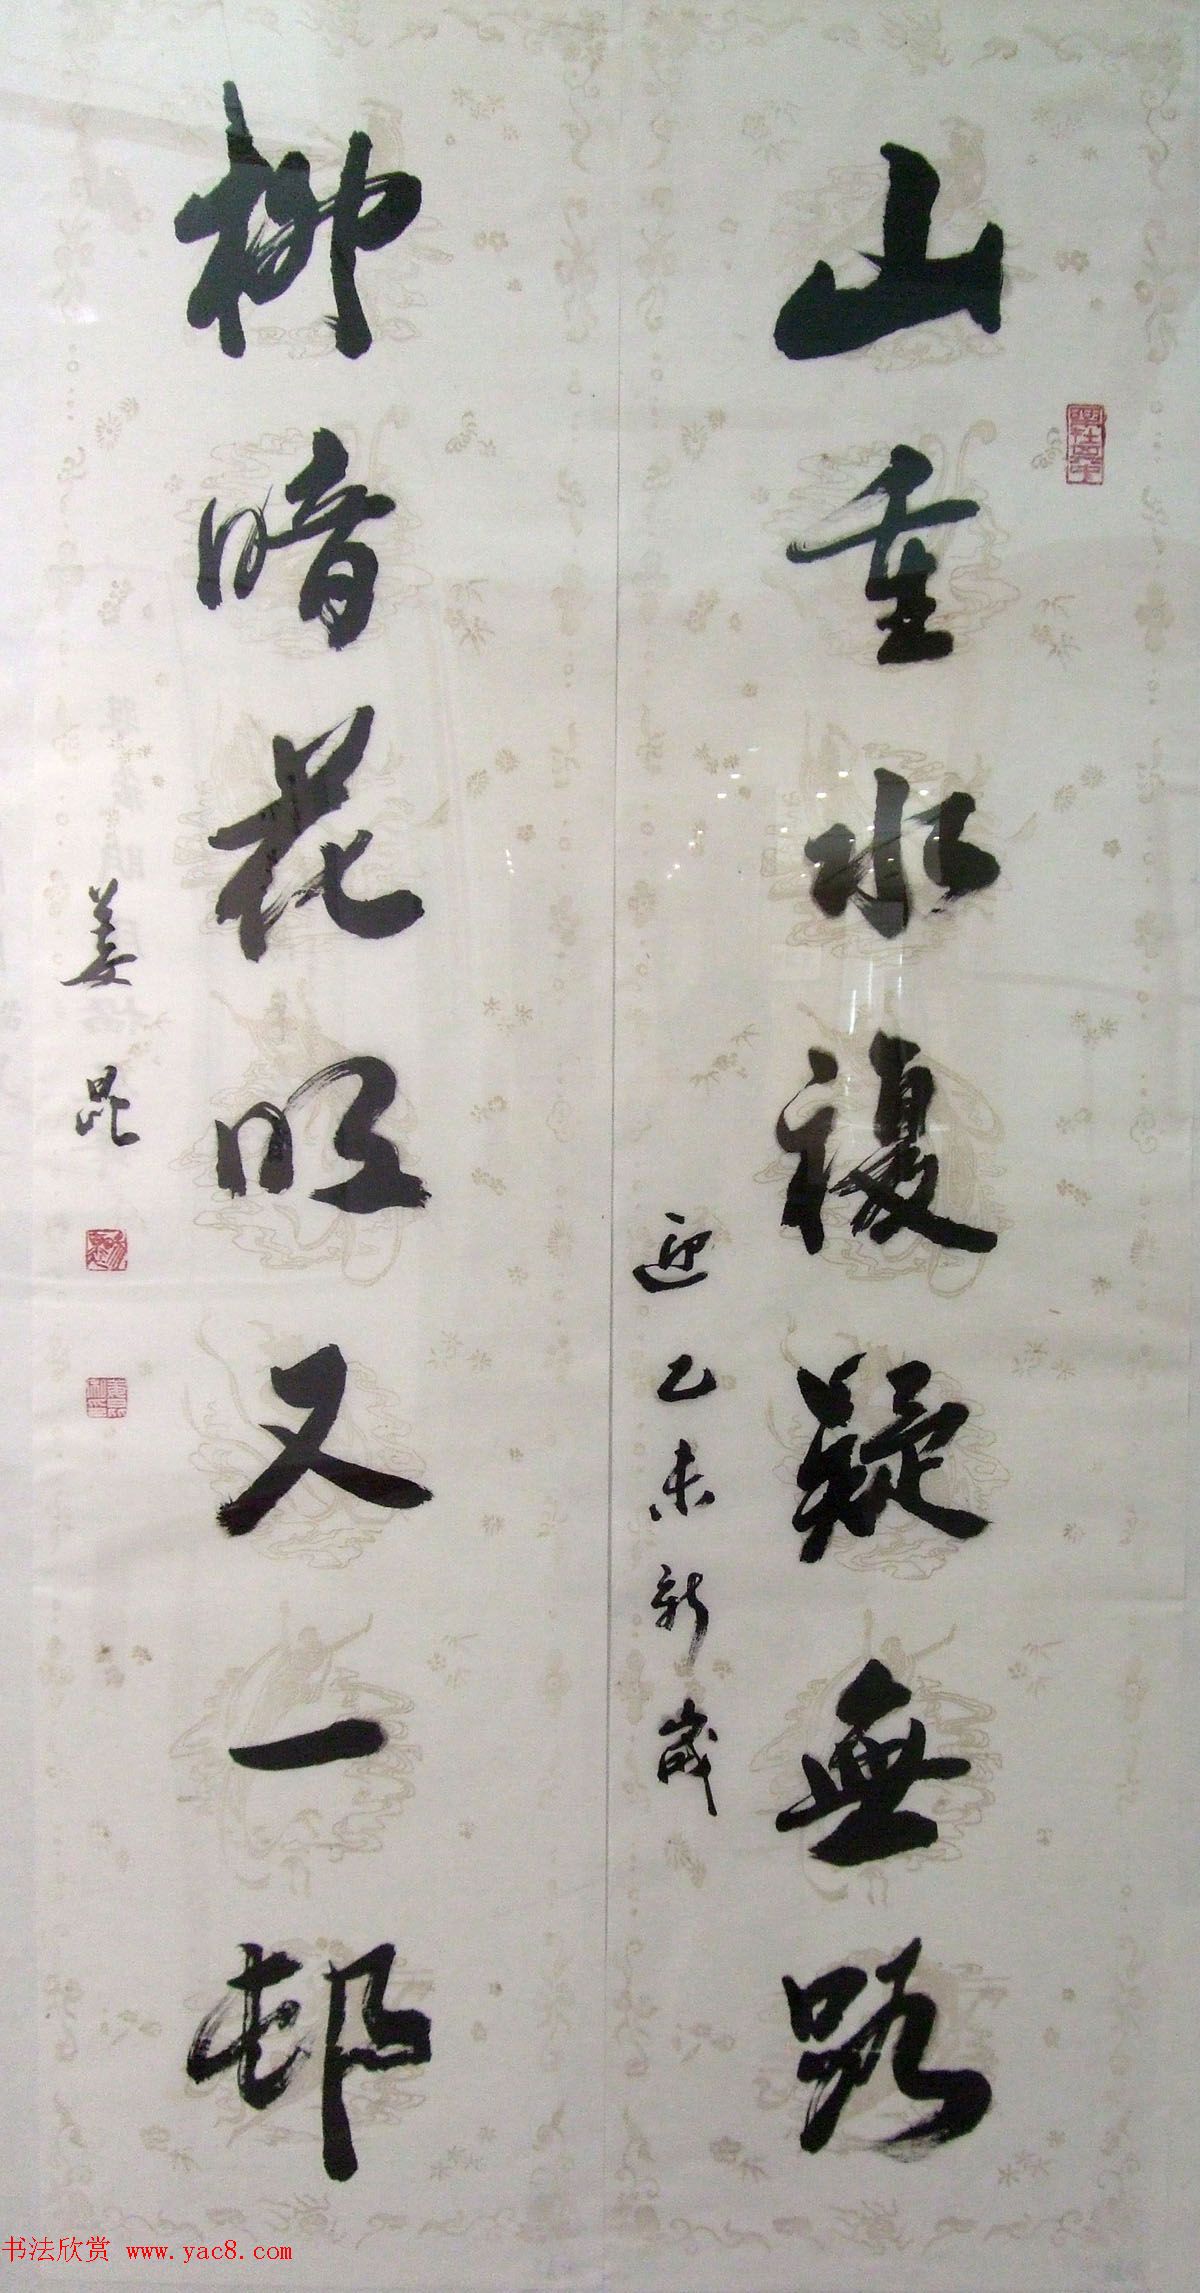 山重水複疑無路
迎乙未新歲
柳暗花明又一邨
姜昆
书法欣赏 www.yac8.com